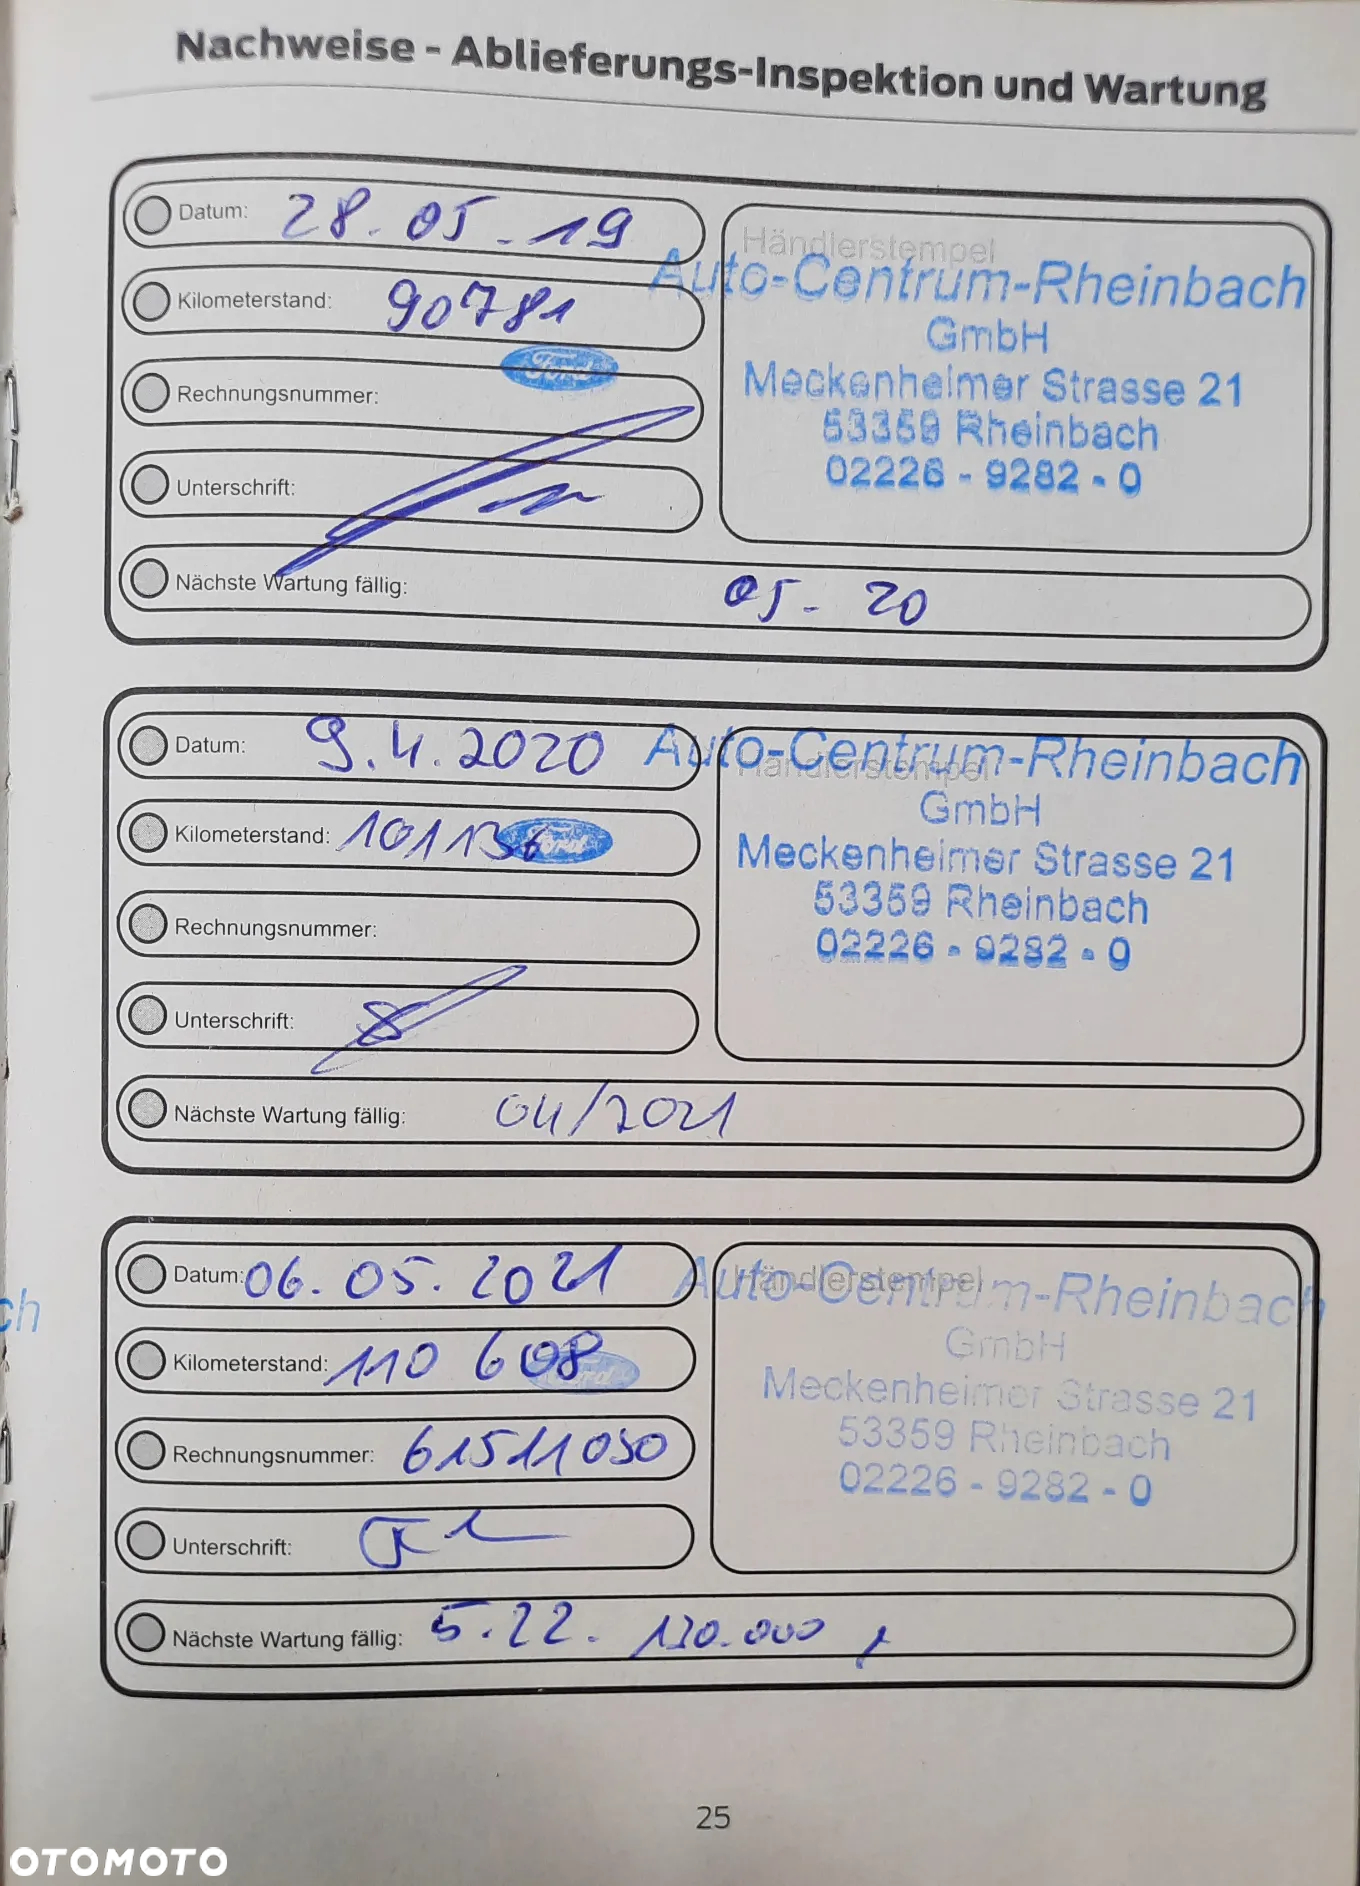 Nachweise - Ablieferungs-Inspektion und Wartung
Datum: 28.05.19
Kilometerstand: 90781
Ford
Rechnungsnummer:
Unterschrift:
Händlerstempel
Auto-Centrum-Rheinbach
GmbH
Meckenheimer Strasse 21
53359 Rheinbach
02226 - 9282 - 0
Nächste Wartung fällig: 05-20
Datum: 9.4.2020
Kilometerstand: 101136
Ford
Rechnungsnummer:
Unterschrift:
Händlerstempel
Auto-Centrum-Rheinbach
GmbH
Meckenheimer Strasse 21
53359 Rheinbach
02226 - 9282 - 0
Nächste Wartung fällig: 04/2021
ch
Datum: 06.05.2021
Kilometerstand: 110 608
Ford
Rechnungsnummer: 61511050
Unterschrift:
Händlerstempel
Auto-Centrum-Rheinbach
GmbH
Meckenheimer Strasse 21
53359 Rheinbach
02226 - 9282 - 0
Nächste Wartung fällig: 5.22.
25
OTOMOTO